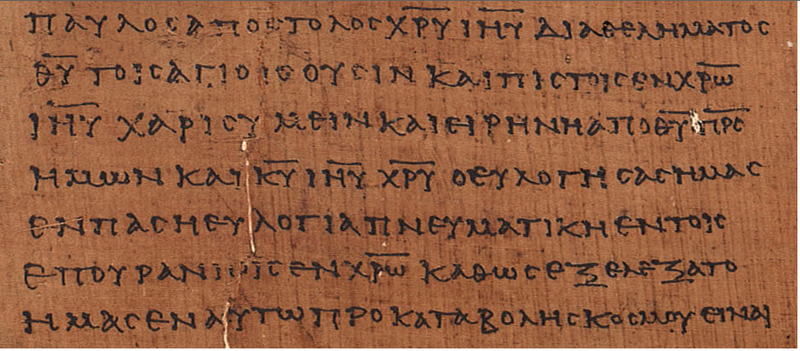 ΠΑΥΛΟϹΑΠΟϹΤΟΛΟϹΧ̅Ρ̅Υ̅ Ι̅Η̅Υ̅ ΔΙΑΘΕΛΗΜΑΤΟϹ
Θ̅Υ̅ ΤΟΙϹΑΓΙΟΙϹΟΥϹΙΝ ΚΑΙΠΙϹΤΟΙϹΕΝΧ̅Ρ̅Ω̅
Ι̅Η̅Υ̅ ΧΑΡΙϹΥΜΕΙΝΚΑΙΕΙΡΗΝΗΑΠΟΘ̅Υ̅ Π̅Ρ̅Ϲ̅
ΗΜΩΝ ΚΑΙ Κ̅Υ̅ Ι̅Η̅Υ̅ Χ̅Ρ̅Υ̅ ΟΕΥΛΟΓΗϹΑϹΗΜΑϹ
ΕΝΠΑϹΗΕΥΛΟΓΙΑΠΝΕΥΜΑΤΙΚΗΕΝΤΟΙϹ
ΕΠΟΥΡΑΝΙΟΙϹΕΝΧ̅Ρ̅Ω̅ ΚΑΘΩϹΕΞΕΛΕΞΑΤΟ
ΗΜΑϹΕΝΑΥΤΩΠΡΟΚΑΤΑΒΟΛΗϹΚΟϹΜΟΥΕΙΝΑΙ